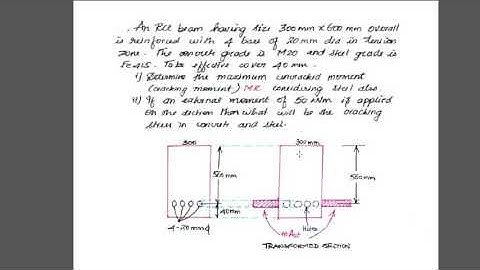 An RCC beam having size 300mm x 600mm overall
is reinforced with 4 bars of 20mm dia in tension
zone. The concrete grade is M20 and steel grade is
Fe415. Take effective cover 40mm.
i) Determine the maximum uncracked moment
(cracking moment) MR considering steel also
ii) If an external moment of 50 kNm is applied
on the section then what will be the cracking
stress in concrete and steel.
300
300mm
560mm
560mm
40mm
4-20mmφ
mAst
Holes
TRANSFORMED SECTION